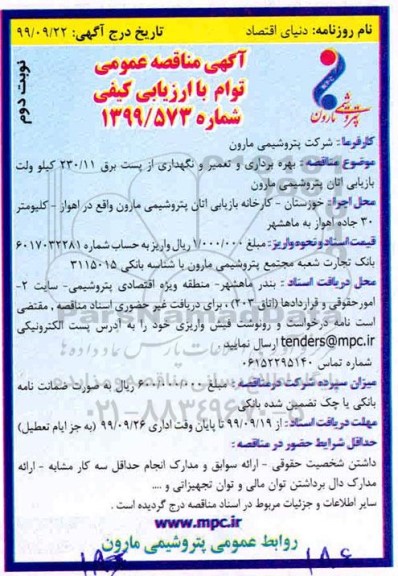 نام روزنامه: دنیای اقتصاد
تاریخ درج آگهی: ۹۹/۰۹/۲۲
نوبت دوم
آگهی مناقصه عمومی
توام با ارزیابی کیفی
شماره ۱۳۹۹/۵۷۳
پتروشیمی مارون
کارفرما: شرکت پتروشیمی مارون
موضوع مناقصه: بهره برداری و تعمیر و نگهداری از پست برق ۲۳۰/۱۱ کیلو ولت
بازیابی اتان پتروشیمی مارون
محل اجرا: خوزستان - کارخانه بازیابی اتان پتروشیمی مارون واقع در اهواز - کلیومتر
۳۰ جاده اهواز به ماهشهر
قیمت اسناد و نحوه واریز: مبلغ ۱/۰۰۰/۰۰۰ ریال واریز به حساب شماره ۶۰۱۷۰۳۲۲۸۱
بانک تجارت شعبه مجتمع پتروشیمی مارون با شناسه بانکی ۳۱۱۵۰۱۵
محل دریافت اسناد: بندر ماهشهر- منطقه ویژه اقتصادی پتروشیمی- سایت ۲-
امورحقوقی و قراردادها (اتاق ۲۰۳)، برای دریافت غیر حضوری اسناد مناقصه، مقتضی
است نامه درخواست و رونوشت فیش واریزی خود را به آدرس پست الکترونیکی
tenders@mpc.ir ارسال نمایید.
شماره تماس ۰۶۱۵۲۲۹۵۱۴۰
میزان سپرده شرکت در مناقصه: مبلغ ۶۰۰/۰۰۰/۰۰۰ ریال به صورت ضمانت نامه
بانکی یا چک تضمین شده بانکی
مهلت دریافت اسناد: از ۹۹/۰۹/۱۹ تا پایان وقت اداری ۹۹/۰۹/۲۶ (به جز ایام تعطیل)
حداقل شرایط حضور در مناقصه:
داشتن شخصیت حقوقی - ارائه سوابق و مدارک انجام حداقل سه کار مشابه - ارائه
مدارک دال برداشتن توان مالی و توان تجهیزاتی و ....
سایر اطلاعات و جزئیات مربوط در اسناد مناقصه درج گردیده است.
www.mpc.ir
روابط عمومی پتروشیمی مارون
ParsNamadData
۰۲۱-۸۸۳۴۹۶۷۰-۵